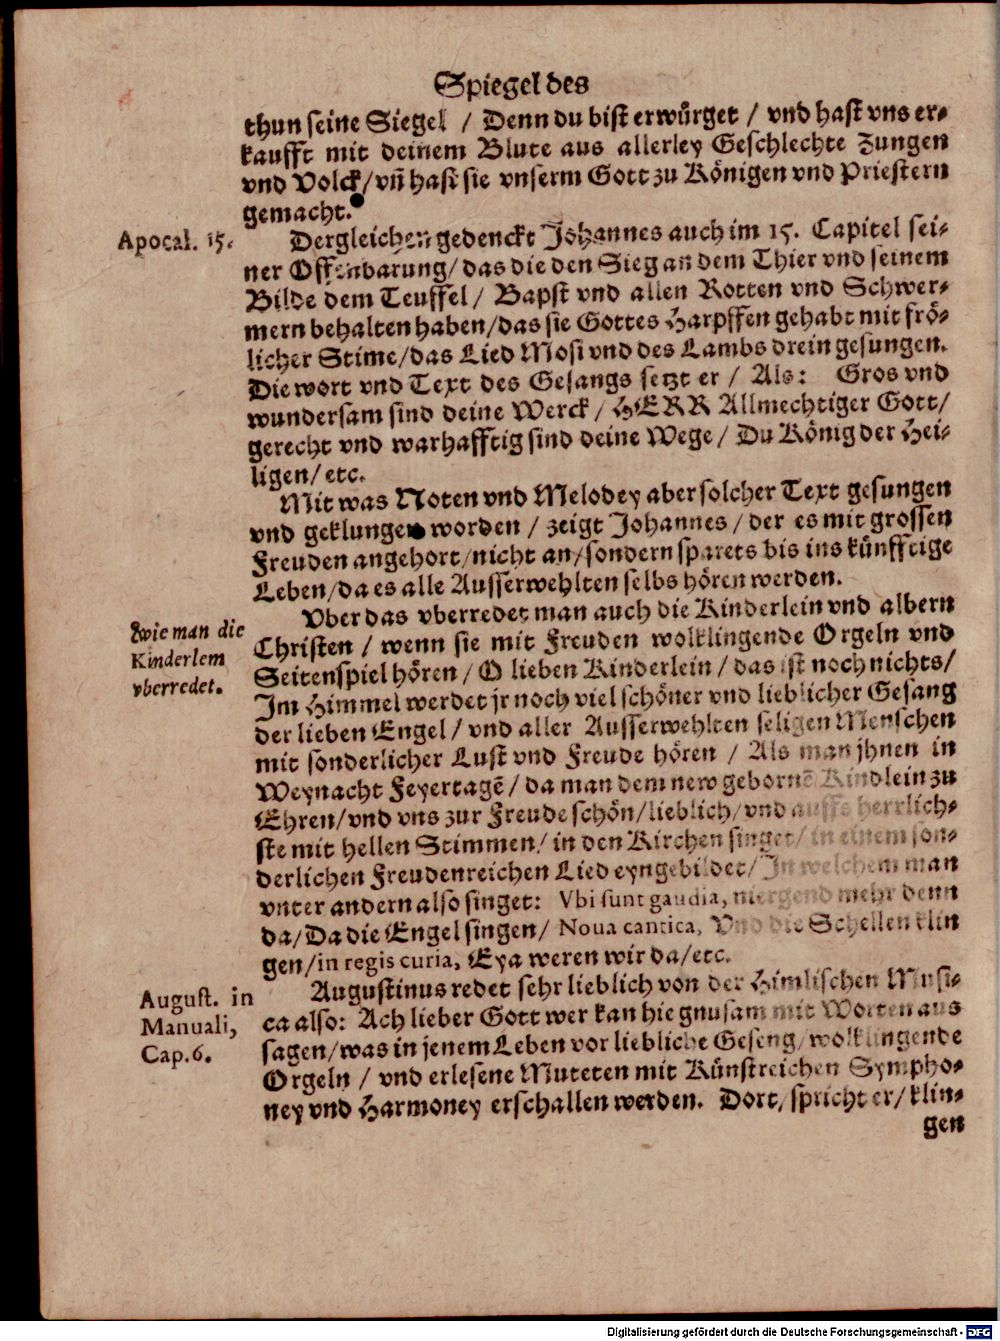 Spiegel des
thun seine Siegel / Denn du bist erwürget / vnd hast vns er-
kaufft mit deinem Blute aus allerley Geschlechte Zungen
vnd Volck/ vñ hast sie vnserm Gott zu Königen vnd Priestern
gemacht.
Apocal. 15.
Dergleichen gedenckt Johannes auch im 15. Capitel sei-
ner Offenbarung/ das die den Sieg an dem Thier vnd seinem
Bilde dem Teuffel / Bapst vnd allen Rotten vnd Schwer-
mern behalten haben/das sie Gottes Harpffen gehabt mit frö-
licher Stime/das Lied Mosi vnd des Lambs drein gesungen.
Die wort vnd Text des Gesangs setzt er / Als: Gros vnd
wundersam sind deine Werck / HERR Allmechtiger Gott/
gerecht vnd warhafftig sind deine Wege / Du König der Hei-
ligen/ etc.
Mit was Noten vnd Melodey aber solcher Text gesungen
vnd geklungen worden / zeigt Johannes / der es mit grossen
Freuden angehort/nicht an/sondern sparets bis ins künfftige
Leben/da es alle Ausserwehlten selbs hören werden.
Wie man die
Kinderlem
vberredet.
Vber das vberredet man auch die Kinderlein vnd albern
Christen / wenn sie mit Freuden wolklingende Orgeln vnd
Seitenspiel hören / O lieben Kinderlein / das ist noch nichts/
Im Himmel werdet jr noch viel schöner vnd lieblicher Gesang
der lieben Engel / vnd aller Ausserwehlten seligen Menschen
mit sonderlicher Lust vnd Freude hören / Als man jhnen in
Weynacht Feyertagē / da man dem new gebornē Kindlein zu
Ehren/vnd vns zur Freude schön/lieblich/ vnd auffs herrlich-
ste mit hellen Stimmen/ in den Kirchen singet/ in einem son-
derlichen Freudenreichen Lied eyngebildet/ In welchem man
vnter andern also singet: Vbi sunt gaudia, niergend mehr denn
da/ Da die Engel singen/ Noua cantica, Vnd die Schellen klin
gen/in regis curia, Eya weren wir da/etc.
August. in
Manuali,
Cap.6.
Augustinus redet sehr lieblich von der Himlischen Musi-
ca also: Ach lieber Gott wer kan hie gnusam mit Worten aus
sagen/was in jenem Leben vor liebliche Geseng/ wolklingende
Orgeln / vnd erlesene Muteten mit Künstreichen Sympho-
ney vnd Harmoney erschallen werden. Dort/ spricht er/ klin-
gen
Digitalisierung gefördert durch die Deutsche Forschungsgemeinschaft - DFG